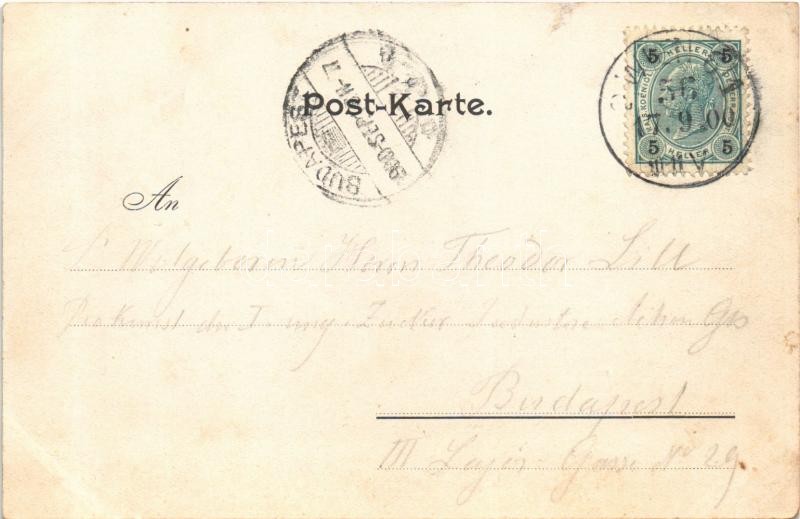 Post-Karte.
5 HELLER 5
36
17.9.00
5 HELLER 5
BUDAPEST
900-SEP
An
Wolgeboren Herrn Theodor Lill
Prokurist der I. ung. Zucker Industrie Actien Ges
Budapest
III Lajos Gasse No 29